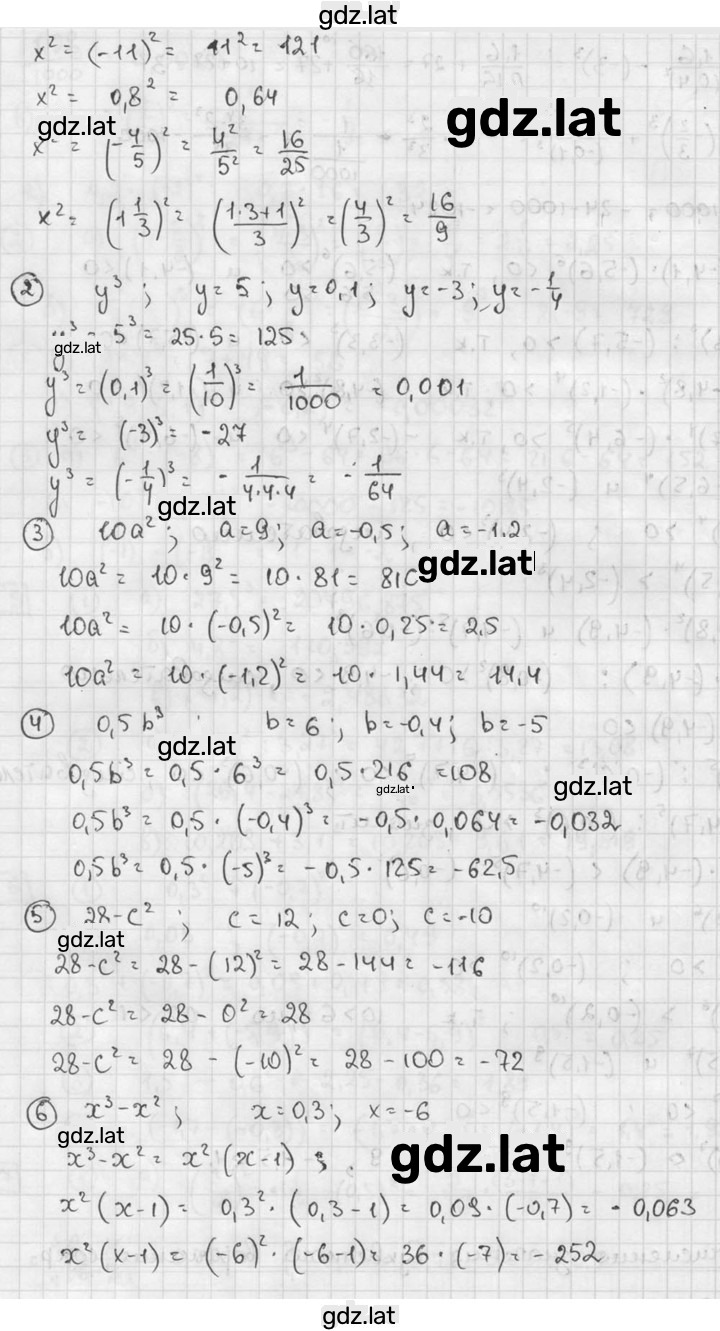 gdz.lat
x² = (-11)² = 11² = 121
x² = 0,8² = 0,64
gdz.lat
gdz.lat
x² = (-4/5)² = 4²/5² = 16/25
x² = (1 1/3)² = ((1·3+1)/3)² = (4/3)² = 16/9
② y³ ; y = 5 ; y = 0,1 ; y = -3 ; y = -1/4
= 5³ = 25·5 = 125
gdz.lat
y³ = (0,1)³ = (1/10)³ = 1/1000 = 0,001
y³ = (-3)³ = -27
y³ = (-1/4)³ = - 1/(4·4·4) = - 1/64
gdz.lat
③ 10a² ; a = 9 ; a = -0,5 ; a = -1.2
gdz.lat
10a² = 10 · 9² = 10 · 81 = 810
10a² = 10 · (-0,5)² = 10 · 0,25 = 2,5
10a² = 10 · (-1,2)² = 10 · 1,44 = 14,4
④ 0,5b³ b = 6 ; b = -0,4 ; b = -5
gdz.lat
0,5b³ = 0,5 · 6³ = 0,5 · 216 = 108
gdz.lat
gdz.lat
0,5b³ = 0,5 · (-0,4)³ = -0,5 · 0,064 = -0,032
0,5b³ = 0,5 · (-5)³ = -0,5 · 125 = -62,5
⑤ 28-c² ; c = 12 ; c = 0 ; c = -10
gdz.lat
28-c² = 28 - (12)² = 28 - 144 = -116
28-c² = 28 - 0² = 28
28-c² = 28 - (-10)² = 28 - 100 = -72
⑥ x³-x² ; x = 0,3 ; x = -6
gdz.lat
gdz.lat
x³-x² = x² (x-1)
x² (x-1) = 0,3² · (0,3-1) = 0,09 · (-0,7) = -0,063
x² (x-1) = (-6)² · (-6-1) = 36 · (-7) = -252
gdz.lat